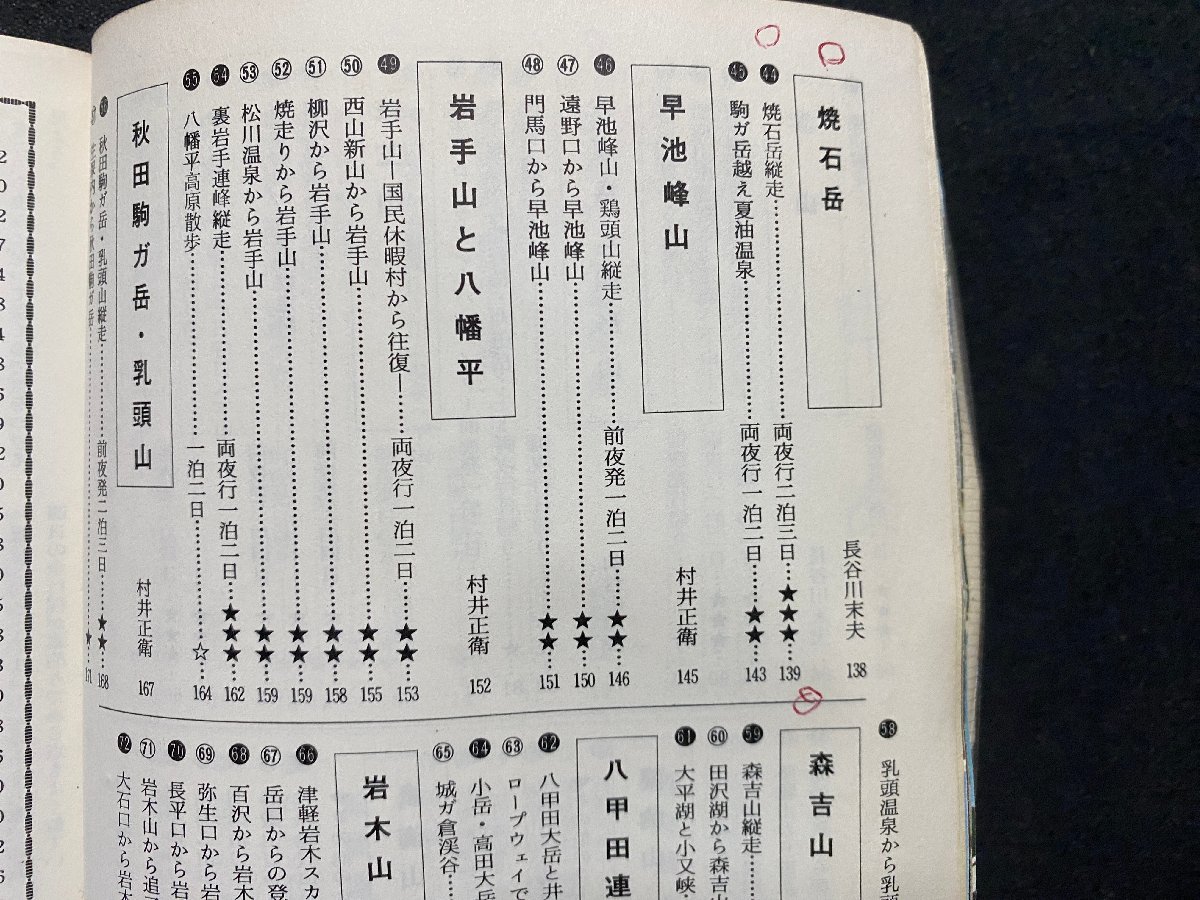 焼石岳 長谷川末夫 138
㊹ 焼石岳縦走……両夜行二泊三日…★★★…139
㊺ 駒ガ岳越え夏油温泉……両夜行一泊二日…★★…143
早池峰山 村井正衛 145
㊻ 早池峰山・鶏頭山縦走……前夜発一泊二日…★★…146
㊼ 遠野口から早池峰山……★★…150
㊽ 門馬口から早池峰山……★★…151
岩手山と八幡平 村井正衛 152
㊾ 岩手山―国民休暇村から往復―……両夜行一泊二日…★★…153
㊿ 西山新山から岩手山……★★…155
51 柳沢から岩手山……★★…158
52 焼走りから岩手山……★★…159
53 松川温泉から岩手山……★★…159
54 裏岩手連峰縦走……両夜行一泊二日…★★★…162
55 八幡平高原散歩……一泊二日……☆…164
秋田駒ガ岳・乳頭山 村井正衛 167
秋田駒ガ岳・乳頭山縦走……前夜発二泊三日…★★…168
58 乳頭温泉から乳頭
森吉山
59 森吉山縦走……
60 田沢湖から森吉山
61 大平湖と小又峡・
八甲田連
62 八甲田大岳と井
63 ロープウェイで
64 小岳・高田大岳
65 城ガ倉渓谷……
岩木山
66 津軽岩木スカ
67 岳口からの登
68 百沢から岩木
69 弥生口から岩
70 長平口から岩
71 岩木山から追
72 大石口から岩木